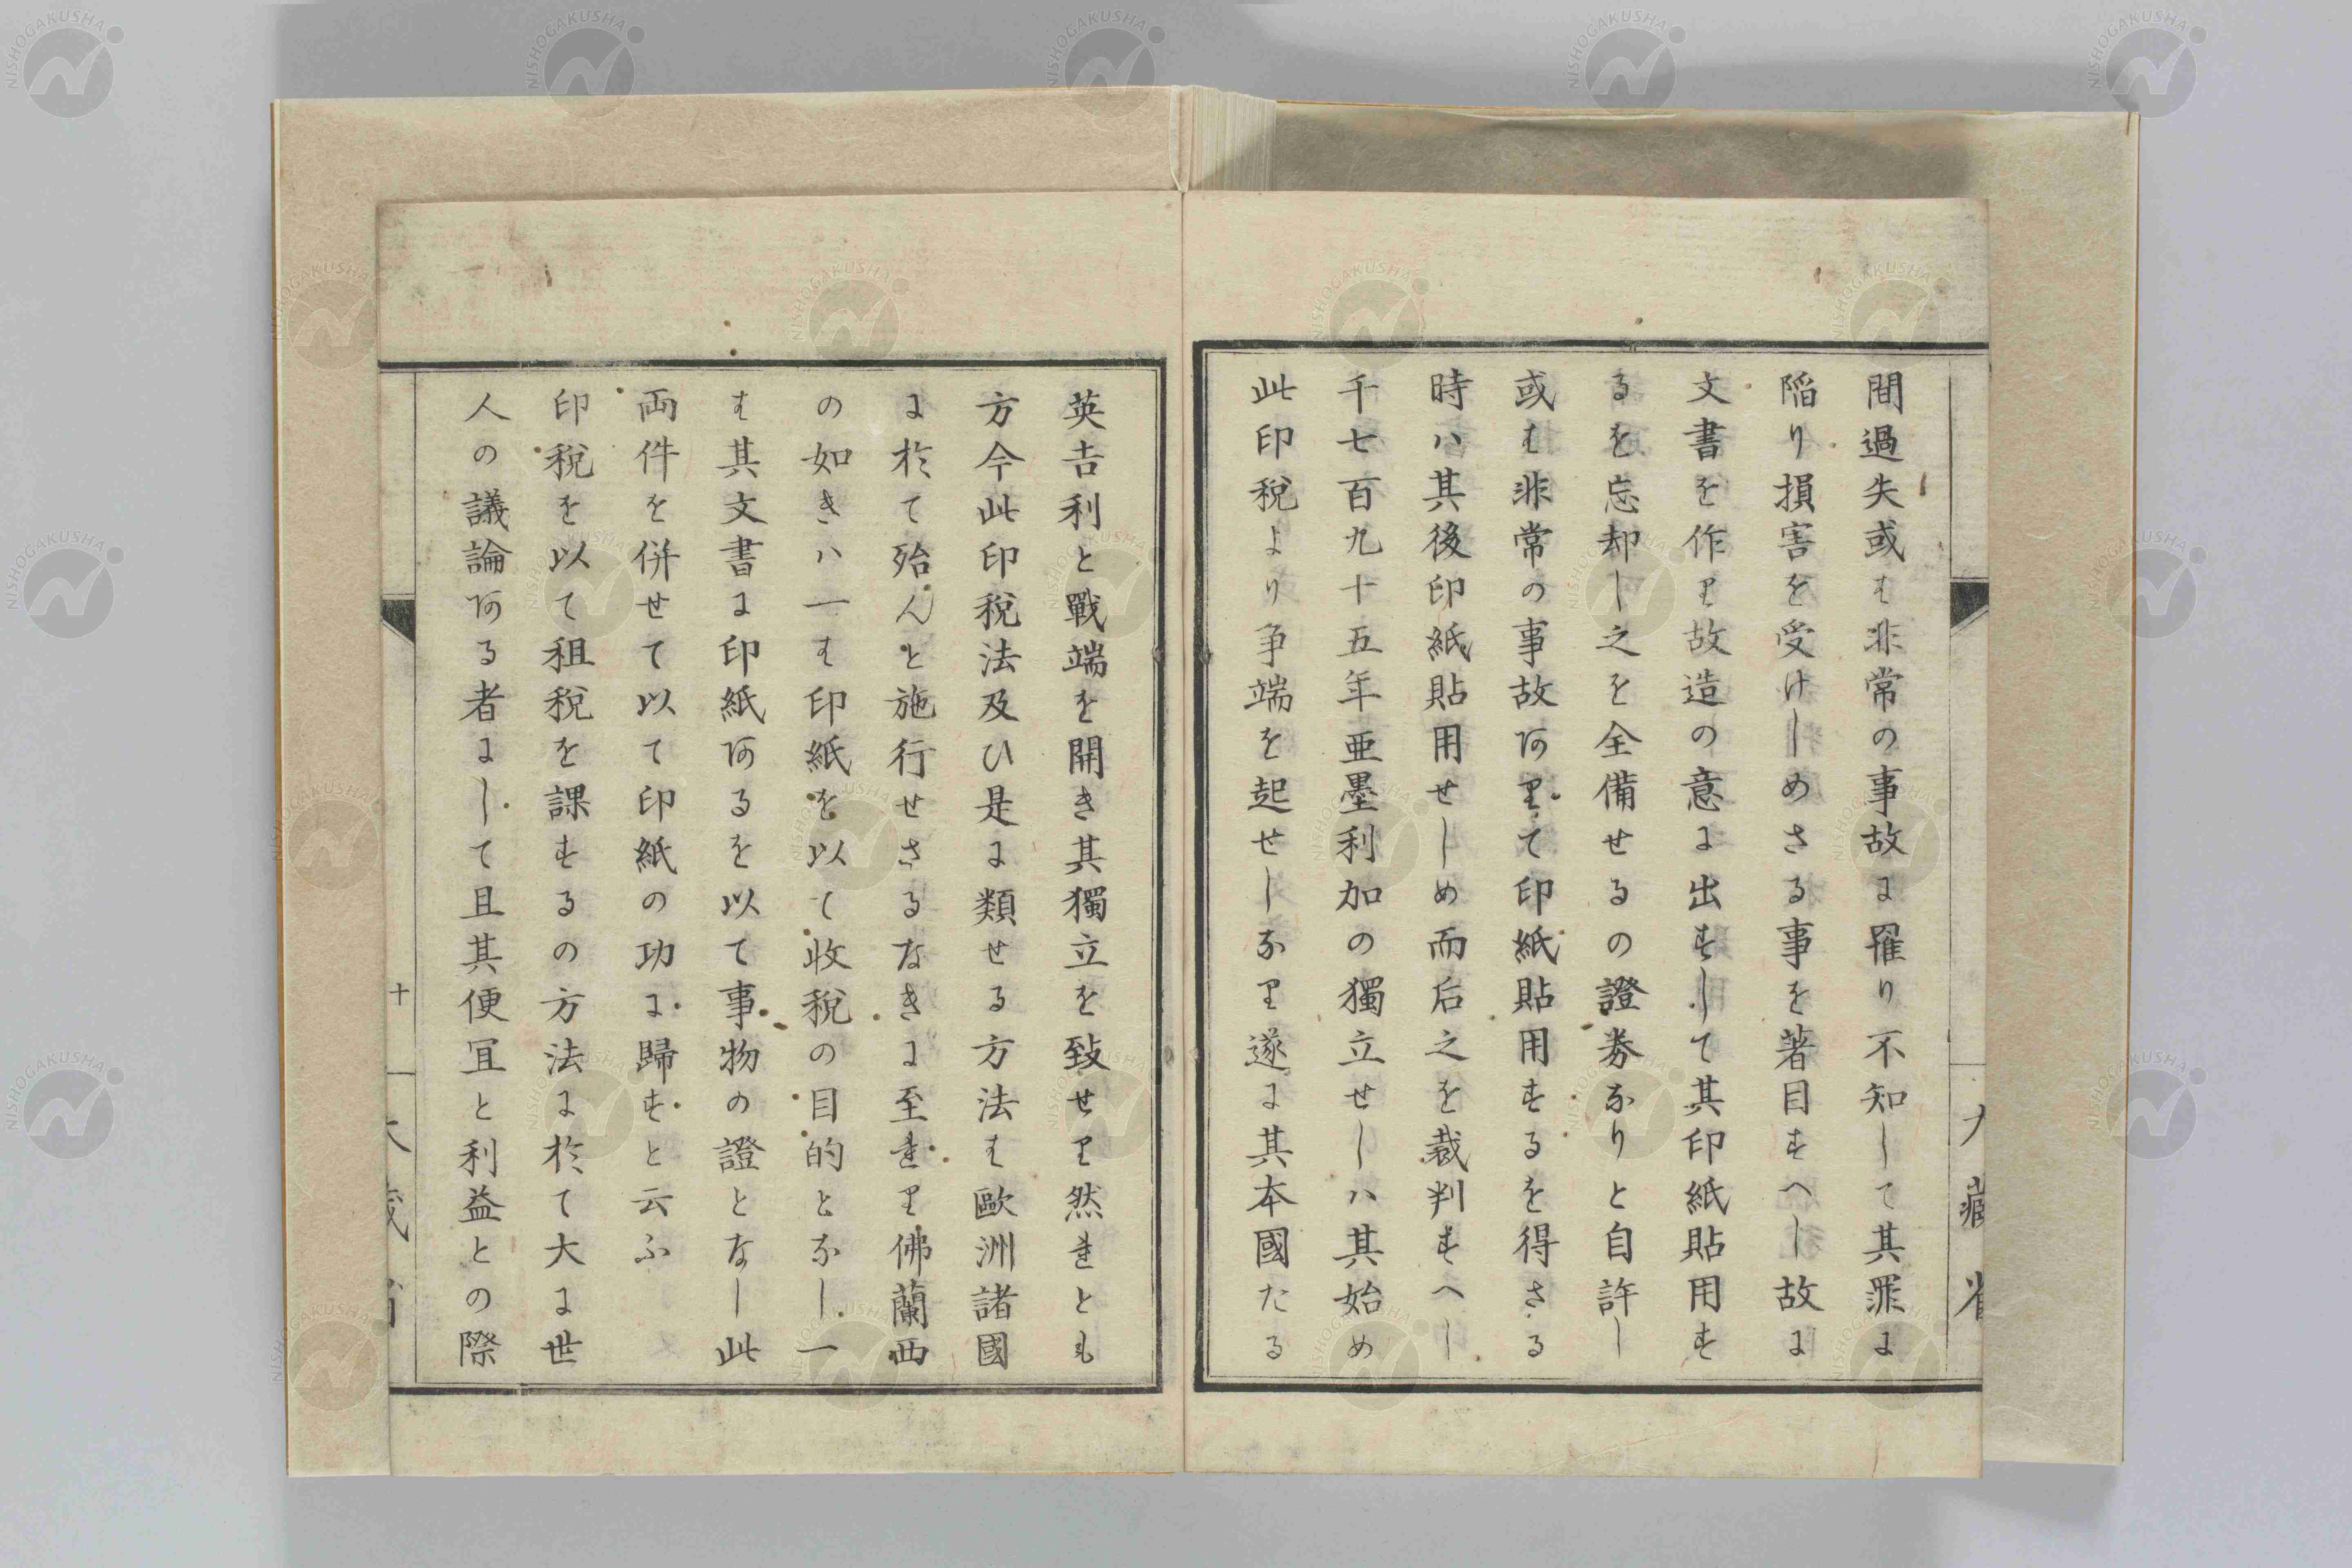 間過失或は非常の事故に罹り不知して其罪に
陥り損害を受けしめさる事を著目すへし故に
文書を作り故造の意に出すして其印紙貼用す
るを忘却し之を全備せるの證券なりと自許し
或は非常の事故ありて印紙貼用するを得さる
時ハ其後印紙貼用せしめ而后之を裁判すへし
千七百九十五年亜墨利加の獨立せしハ其始め
此印税より争端を起せしなり遂に其本國たる
大藏省
英吉利と戰端を開き其獨立を致せり然れとも
方今此印税法及ひ是に類せる方法は歐洲諸國
に於て殆んと施行せさるなきに至れり佛蘭西
の如きハ一は印紙を以て收税の目的となし一
は其文書に印紙あるを以て事物の證となし此
両件を併せて以て印紙の功に歸すと云ふ
印税を以て租税を課するの方法に於て大に世
人の議論ある者にして且其便冝と利益との際
十
大藏省
NISHOGAKUSHA